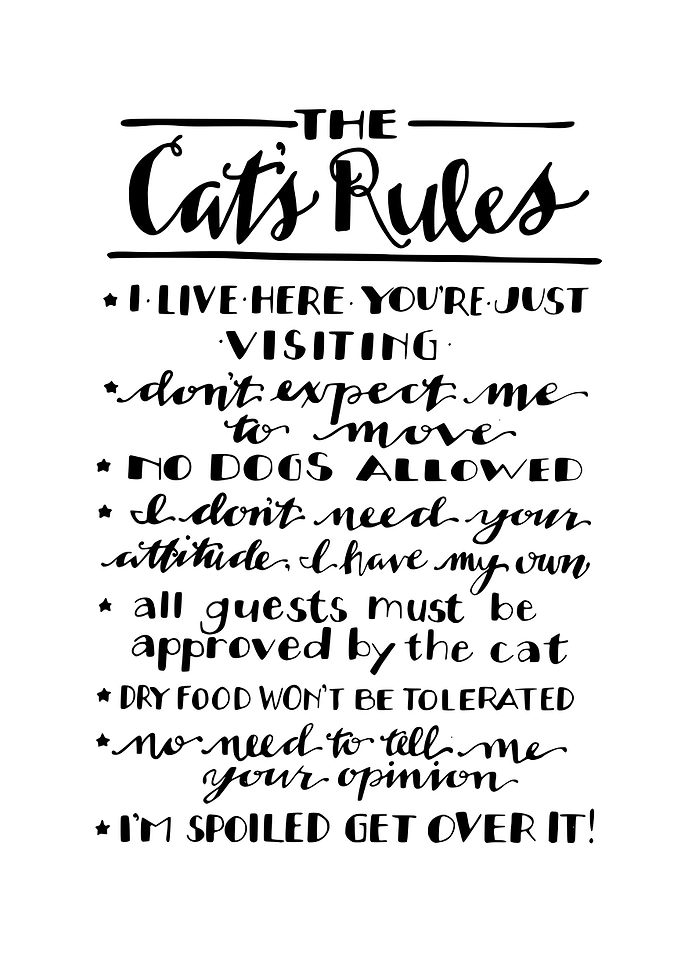 THE
Cat's Rules
★ I · LIVE · HERE · YOU'RE · JUST
· VISITING ·
★ don't expect me
to move
★ NO DOGS ALLOWED
★ I don't need your
attitude, I have my own
★ all guests must be
approved by the cat
★ DRY FOOD WON'T BE TOLERATED
★ no need to tell me
your opinion
★ I'M SPOILED GET OVER IT!